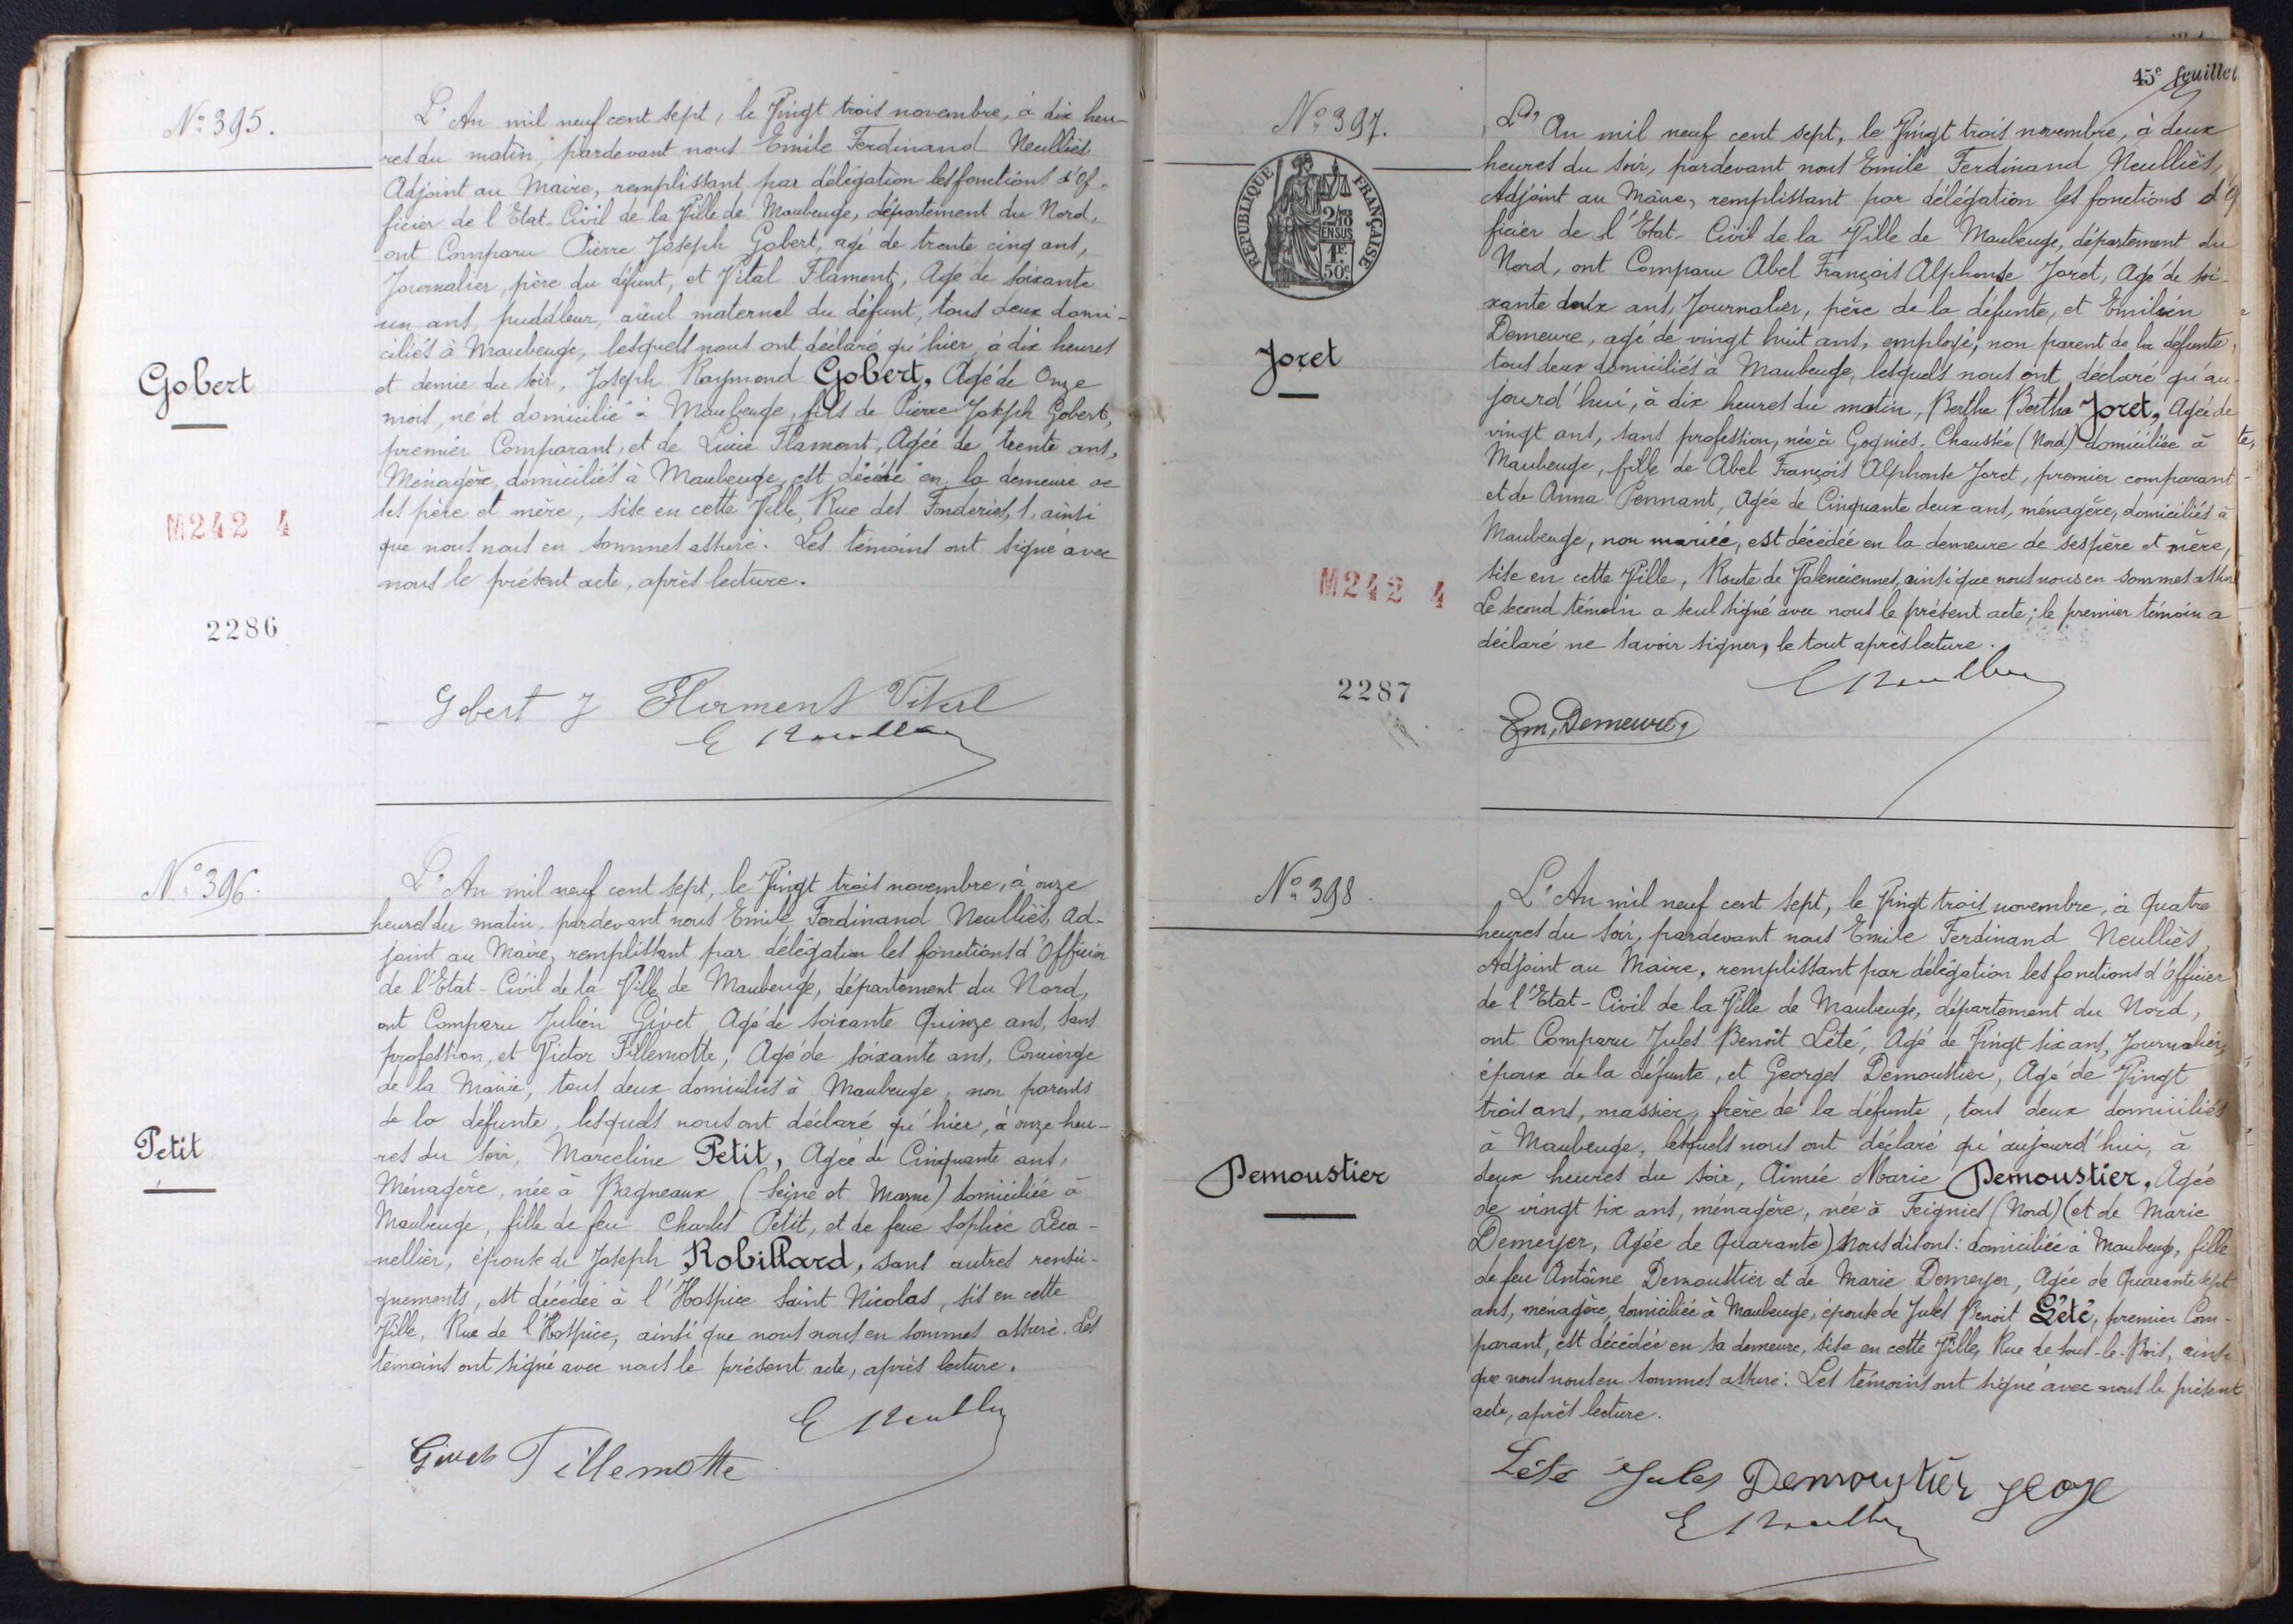 N° 395.
Gobert
M242 4
2286
L'An mil neuf cent sept, le Vingt trois novembre, à dix heu-
res du matin, pardevant nous Emile Ferdinand Neulliès
Adjoint au Maire, remplissant par délégation les fonctions d'Of-
ficier de l'Etat-Civil de la Ville de Maubeuge, département du Nord,
ont Comparu Pierre Joseph Gobert, agé de trente cinq ans,
Journalier, père du défunt, et Vital Flament, Agé de soixante
un ans, puddleur, aïeul maternel du défunt, tous deux domi-
ciliés à Maubeuge, lesquels nous ont déclaré qu'hier, à dix heures
et demie du soir, Joseph Raymond Gobert, Agé de Onze
mois, né et domicilié à Maubeuge, fils de Pierre Joseph Gobert,
premier Comparant, et de Lucie Flament, Agée de trente ans,
Ménagère, domiciliés à Maubeuge, est décédé en la demeure de
ses père et mère, sise en cette Ville, Rue des Fonderies, 1, ainsi
que nous nous en sommes assuré. Les témoins ont signé avec
nous le présent acte, après lecture.
Gobert J Flament Vital
N° 396.
Petit
L'An mil neuf cent sept, le Vingt trois novembre, à onze
heures du matin, pardevant nous Emile Ferdinand Neulliès, Ad-
joint au Maire, remplissant par délégation les fonctions d'Officier
de l'Etat-Civil de la Ville de Maubeuge, département du Nord,
ont Comparu Julien Givet, Agé de soixante Quinze ans, sans
profession, et Victor Tillemotte, Agé de soixante ans, Concierge
de la Mairie, tous deux domiciliés à Maubeuge, non parents
de la défunte, lesquels nous ont déclaré qu'hier, à onze heu-
res du soir, Marceline Petit, Agée de Cinquante ans,
Ménagère, née à Bagneaux (Seine et Marne) domiciliée à
Maubeuge, fille de feu Charles Petit, et de feue Sophie Leca-
nellier, épouse de Joseph Robillard, sans autres rensei-
gnements, est décédée à l'Hospice Saint Nicolas, sis en cette
Ville, Rue de l'Hospice, ainsi que nous nous en sommes assuré. Les
témoins ont signé avec nous le présent acte, après lecture.
Givet Tillemotte
45e feuillet
N° 397.
REPUBLIQUE FRANÇAISE
2/10
EN SUS
1F.
50c
Joret
M242 4
2287
L'An mil neuf cent sept, le Vingt trois novembre, à deux
heures du soir, pardevant nous Emile Ferdinand Neulliès,
Adjoint au Maire, remplissant par délégation les fonctions d'Of
ficier de l'Etat-Civil de la Ville de Maubeuge, département du
Nord, ont Comparu Abel François Alphonse Joret, Agé de soi-
xante deux ans, Journalier, père de la défunte, et Emilien
Demeure, agé de vingt huit ans, employé, non parent de la défunte,
tous deux domiciliés à Maubeuge, lesquels nous ont déclaré qu'au-
jourd'hui, à dix heures du matin, Berthe Bertha Joret, Agée de
vingt ans, sans profession, née à Gognies-Chaussée (Nord) domiciliée à
Maubeuge, fille de Abel François Alphonse Joret, premier comparant
et de Anna Pennant, Agée de Cinquante deux ans, ménagère, domiciliés à
Maubeuge, non mariée, est décédée en la demeure de ses père et mère,
sise en cette Ville, Route de Valenciennes, ainsi que nous nous en sommes assuré
Le second témoin a seul signé avec nous le présent acte; le premier témoin a
déclaré ne savoir signer, le tout après lecture.
Em. Demeure
N° 398.
Demoustier
L'An mil neuf cent sept, le Vingt trois novembre, à Quatre
heures du soir, pardevant nous Emile Ferdinand Neulliès,
Adjoint au Maire, remplissant par délégation les fonctions d'officier
de l'Etat-Civil de la Ville de Maubeuge, département du Nord,
ont Comparu Jules Benoît Lété, Agé de Vingt six ans, Journalier,
époux de la défunte, et Georges Demoustier, Agé de Vingt
trois ans, massier, frère de la défunte, tous deux domiciliés
à Maubeuge, lesquels nous ont déclaré qu'aujourd'hui, à
deux heures du soir, Aimée Marie Demoustier, Agée
de vingt six ans, ménagère, née à Feignies (Nord) (et de Marie
Demeyer, Agée de Quarante) Nous disons: domiciliée à Maubeuge, fille
de feu Antoine Demoustier et de Marie Demeyer, Agée de Quarante sept
ans, ménagère, domiciliée à Maubeuge, épouse de Jules Benoit Lété, premier Com-
parant, est décédée en sa demeure, sise en cette Ville, Rue de Sous-le-Bois, ainsi
que nous nous en sommes assuré. Les témoins ont signé avec nous le présent
acte, après lecture.
Lété Jules Demoustier george